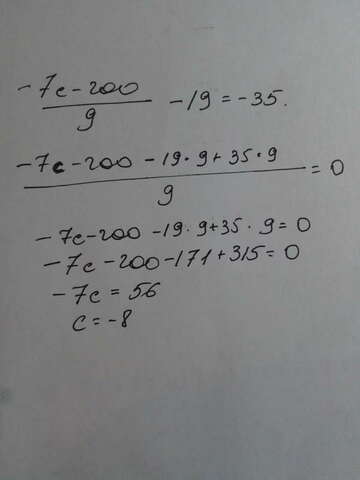 (-7c-200)/9 -19=-35.
(-7c-200-19·9+35·9)/9 =0
-7c-200-19·9+35·9=0
-7c-200-171+315=0
-7c=56
c=-8